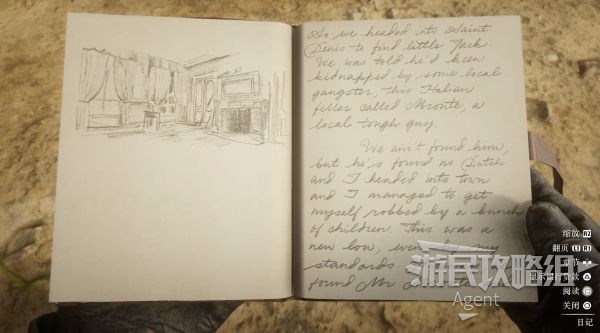 So we headed into Saint
Denis to find little Jack.
We was told he'd been
kidnapped by some local
gangster, this Italian
feller called Bronte, a
local tough guy.
We ain't found him,
but he's found us. Dutch
and I headed into town
and I managed to get
myself robbed by a bunch
of children. This was a
new low, even my
standards
found Mr
游民攻略组
Agent
缩放 R2
翻页 L1 R1
章节
阅读
关闭
日记